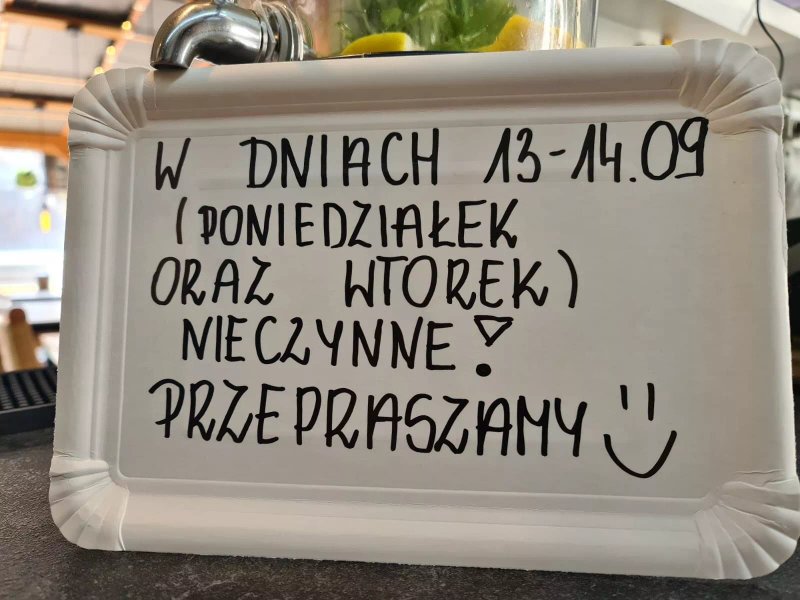 W DNIACH 13-14.09
(PONIEDZIAŁEK
ORAZ WTOREK)
NIECZYNNE!
PRZEPRASZAMY